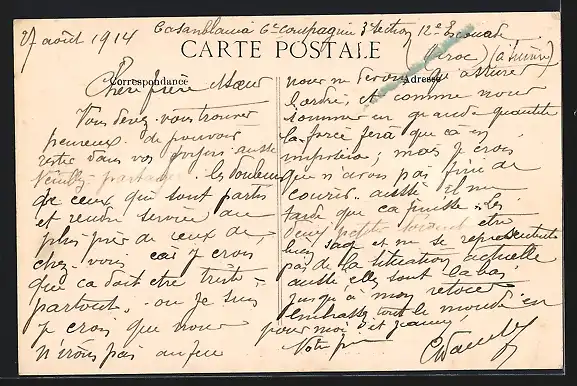 27 août 1914 Casablanca 6e Compagnie 3e section 12e Escouade
CARTE POSTALE
(Maroc) (à suivre)
Correspondance
Adresse
Cher frère et Sœur
Vous devez vous trouver
heureux de pouvoir
rester dans vos foyers aussi
Veuillez partager les douleurs
de ceux qui sont partis
et rendre service au
plus près de ceux de
chez vous car je crois
que ça doit être triste
partout. où je suis
je crois que nous
n'irons pas au feu
nous ne devons qu'assurer
l'ordre, et comme nous
sommes en grande quantité
la force fera que ça en
imposera; mais je crois
que n'avons pas fini de
courir aussi il me
tarde que ça finisse. les
deux petits doivent être
bien sage et ne se représente
pas de la situation actuelle
aussi elles sont là bas
jusqu'à mon retour
embrasse tout le monde en
pour moi et Jeanne
Votre